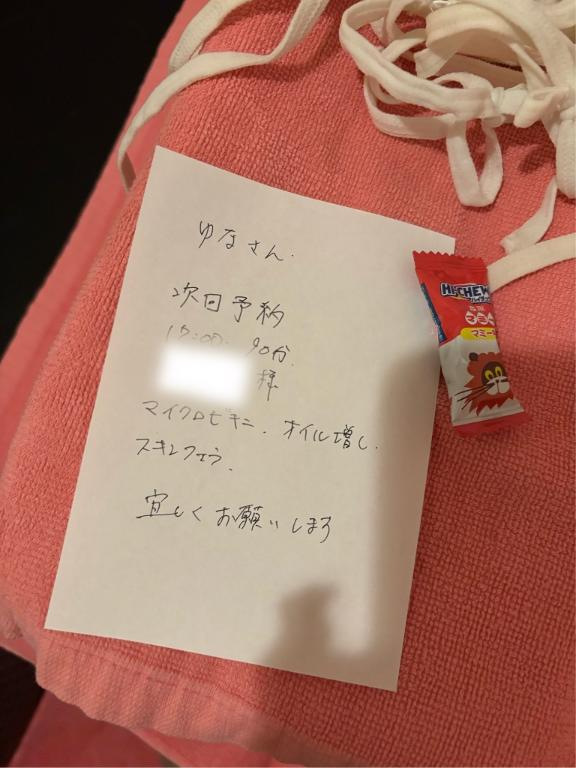 ゆなさん.
次回予約
17:00. 90分.
様
マイクロビキニ. オイル増し.
スキンフェラ.
宜しくお願いします
HI-CHEW
マミー